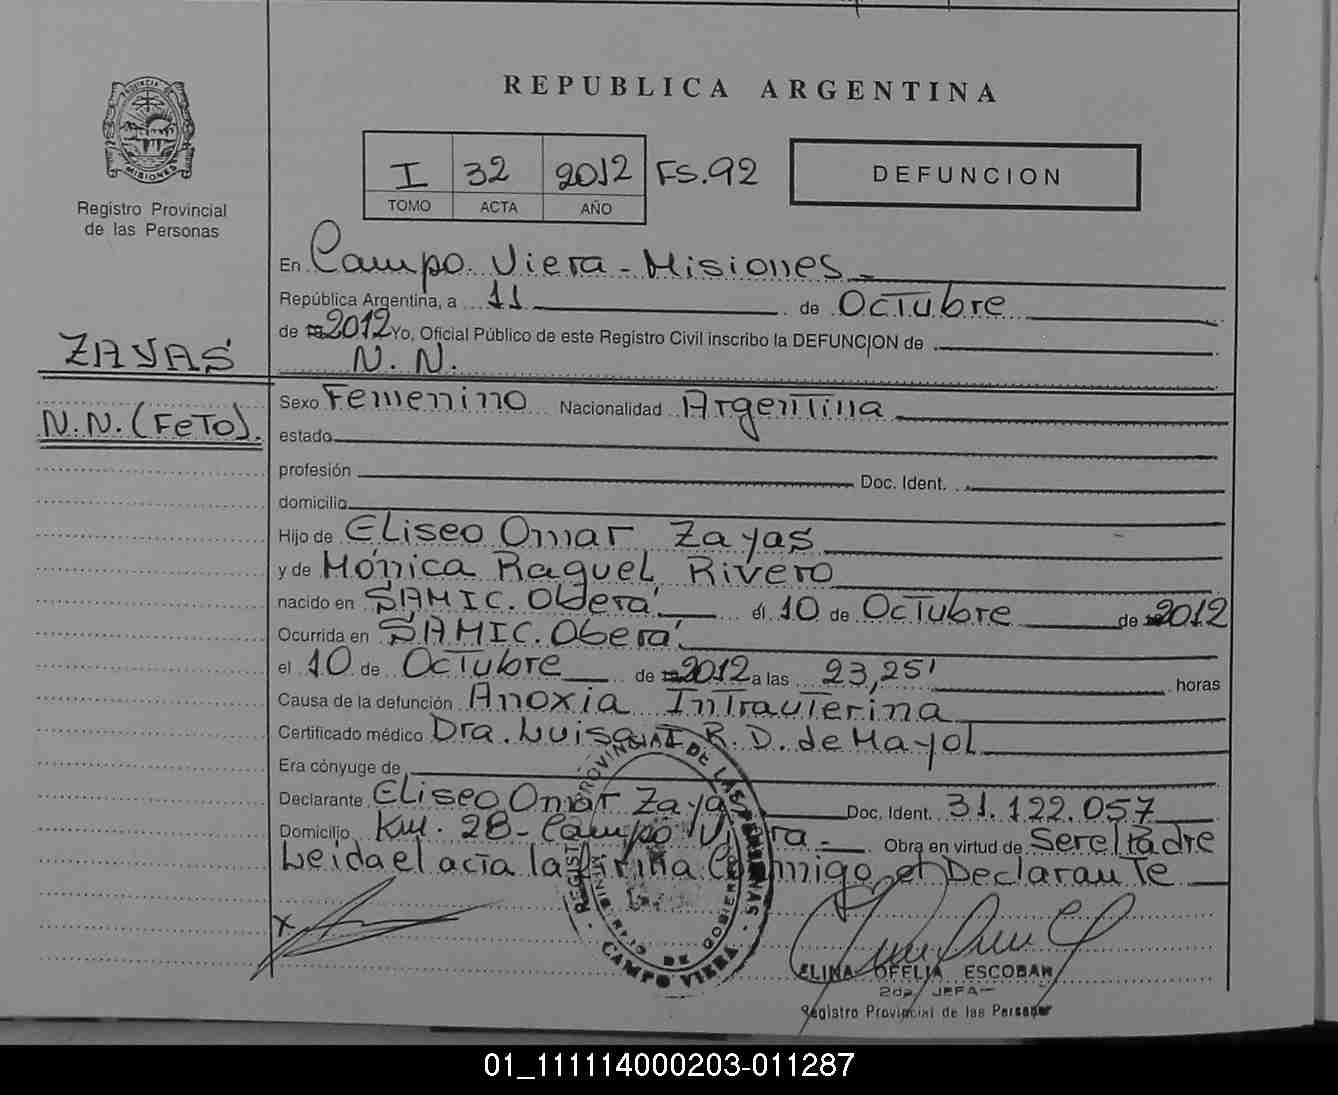 REPUBLICA ARGENTINA
PROVINCIA DE MISIONES
Registro Provincial
de las Personas
I 32 2012 FS.92
TOMO ACTA AÑO
DEFUNCION
En Campo Viera - Misiones -
República Argentina, a 11 de Octubre
de 2012 Yo, Oficial Público de este Registro Civil inscribo la DEFUNCION de
N. N.
ZAYAS
N.N. (FeTo).
Sexo Femenino Nacionalidad Argentina
estado
profesión Doc. Ident.
domicilio
Hijo de Eliseo Omar Zayas
y de Mónica Raquel Rivero
nacido en SAMIC. Oberá el 10 de Octubre de 2012
Ocurrida en SAMIC. Oberá
el 10 de Octubre de 2012 a las 23,25' horas
Causa de la defunción Anoxia Intrauterina
Certificado médico Dra. Luisa I R. D. de Mayol
Era cónyuge de
Declarante Eliseo Omar Zayas Doc. Ident. 31.122.057
Domicilio Km. 28 - Campo Viera - Obra en virtud de Ser el Padre
Leida el acta la firma Conmigo el Declarante
X
REGISTRO PROVINCIAL DE LAS PERSONAS
MINISTERIO DE GOBIERNO
- CAMPO VIERA -
ELINA OFELIA ESCOBAR
2da JEFA
Registro Provincial de las Personas
01_111114000203-011287